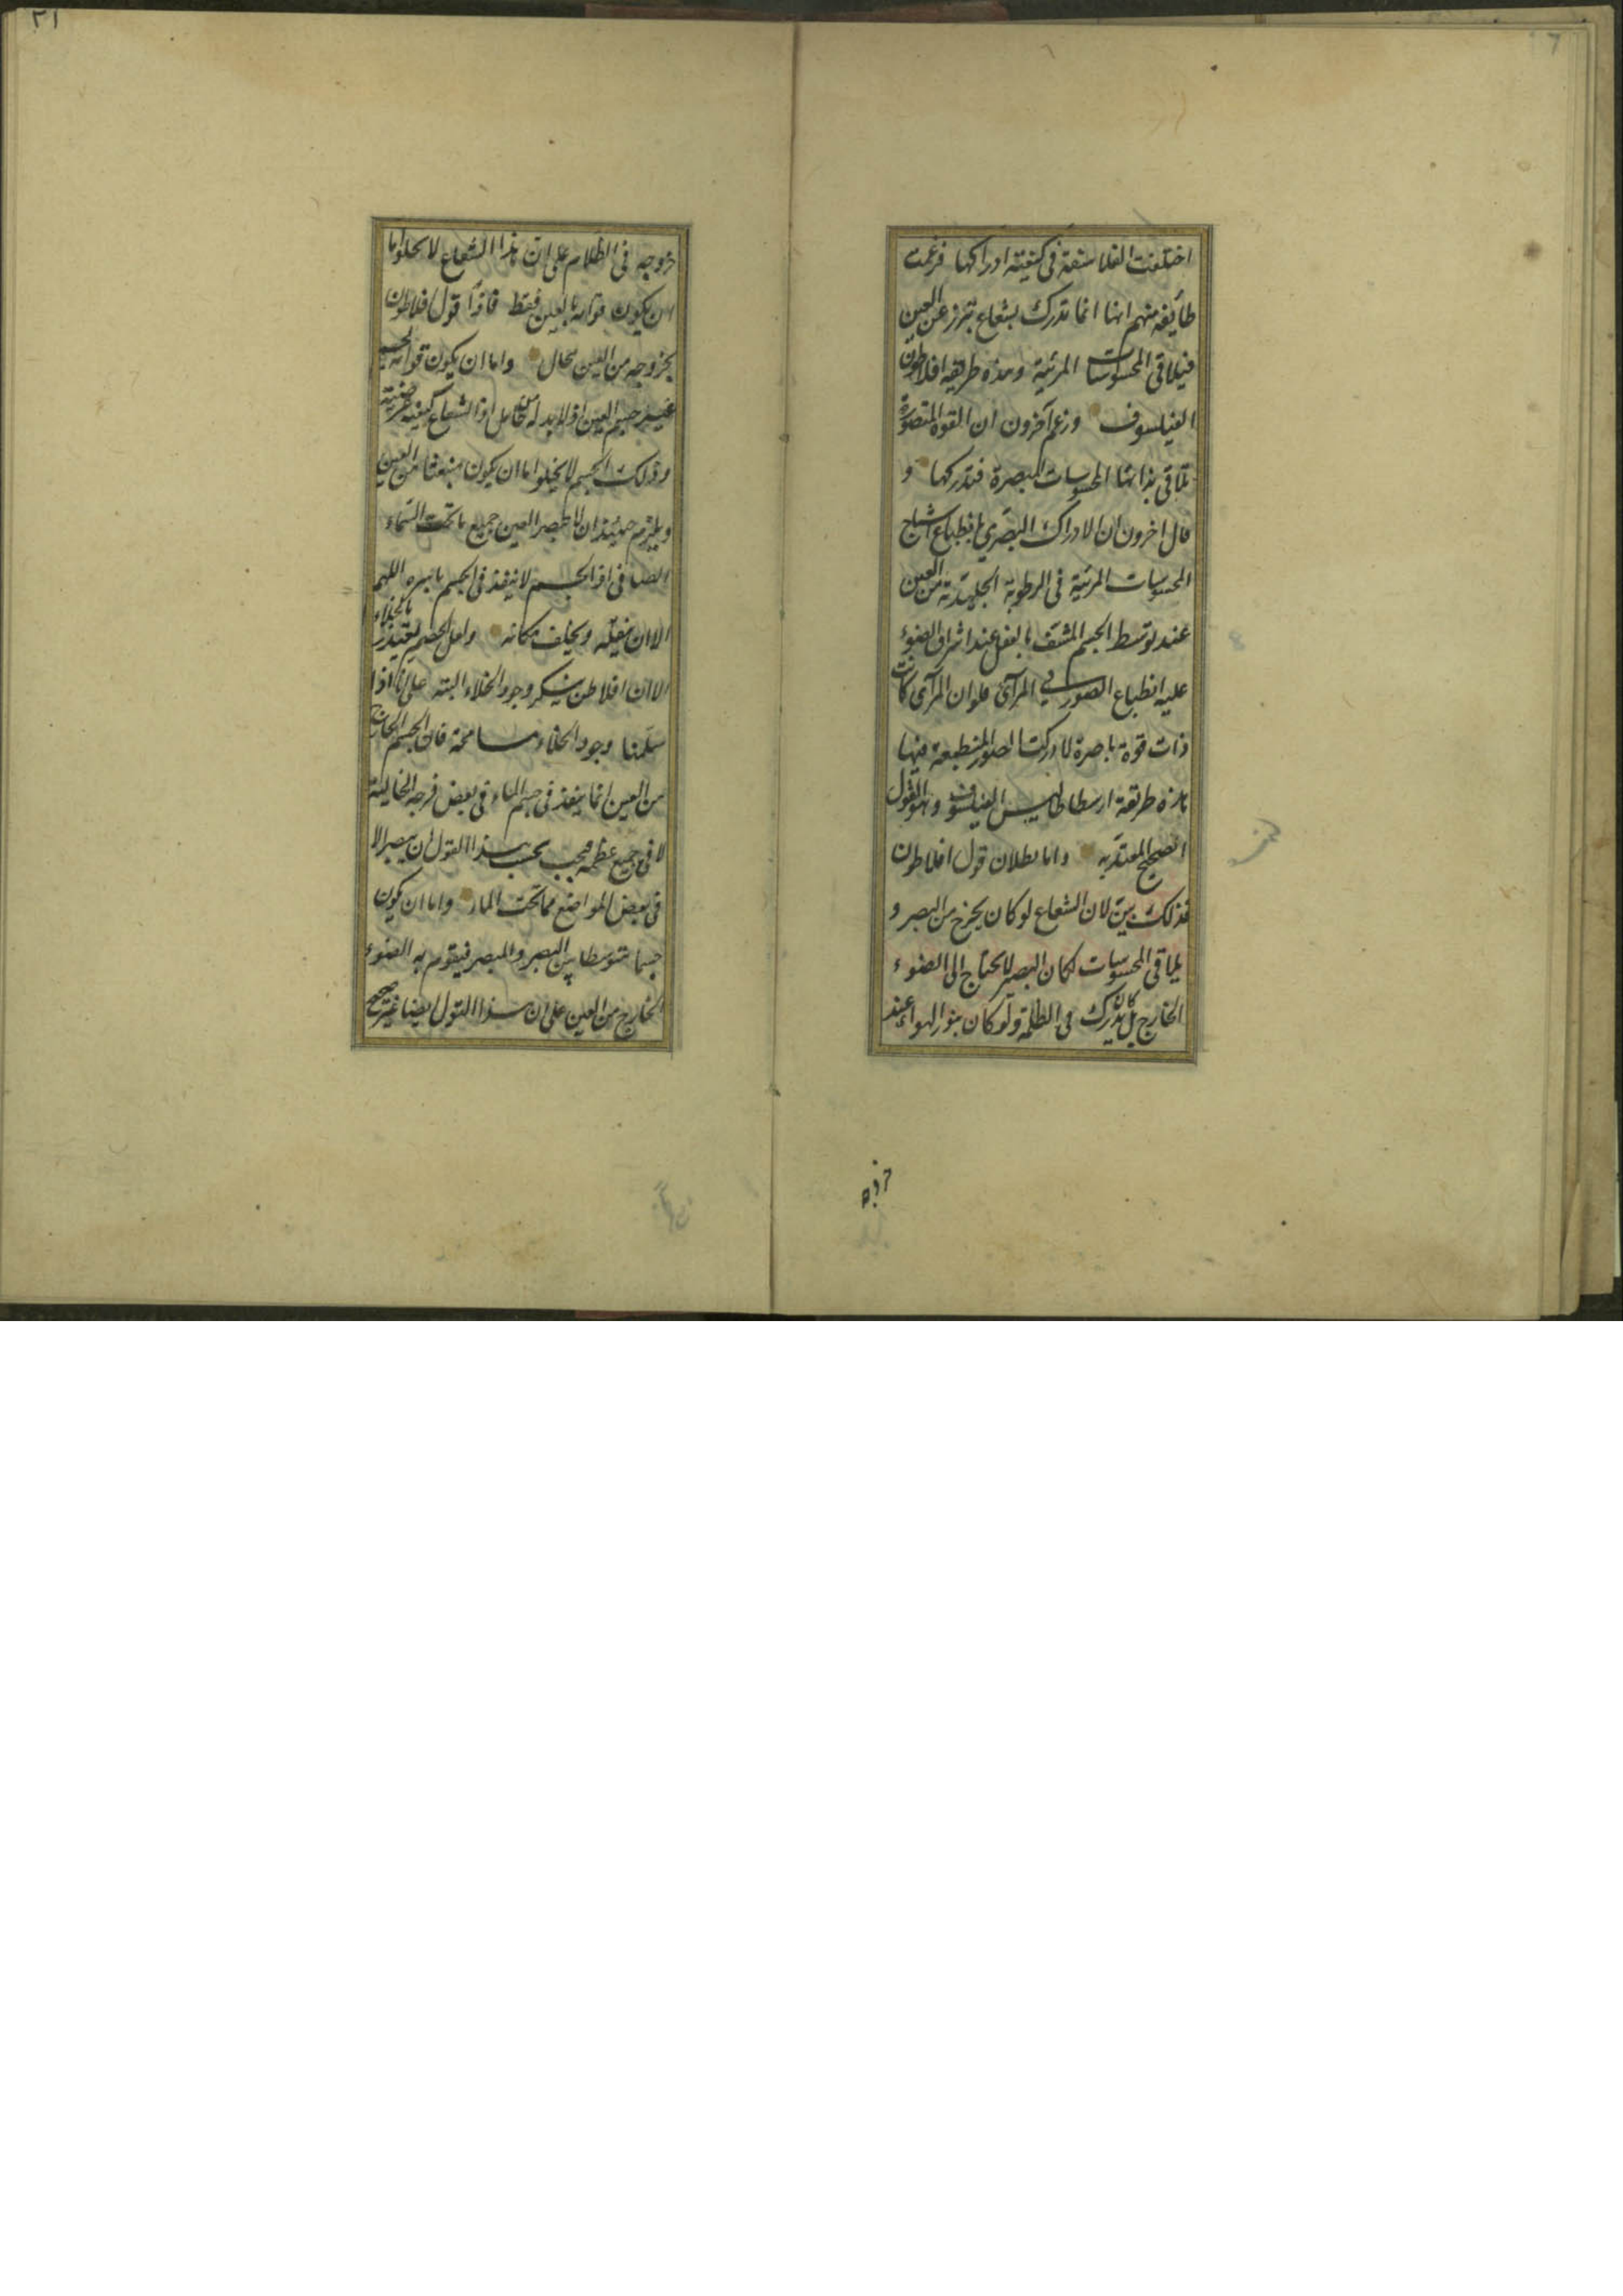 اختلفت الفلاسفة فى كيفية ادراكها فزعمت
طائفة منهم انها انما تدرك بشعاع تبرز عن العين
فيلاقى المحسوسات المرئية وهذه طريقه افلاطون
الفيلسوف وزعم آخرون ان القوة المتصورة
تلاقى بذاتها المحسوسات المبصرة فتدركها و
قال اخرون ان الادراك البصرى بانطباع اشباح
المحسوسات المرئية فى الرطوبة الجليدية من العين
عند توسط الجسم المشف بالفعل عند اشراق الضوء
عليه انطباع الصور فى المرآئ فلو ان المرآئ كانت
ذات قوة باصرة لادركت الصور المنطبعة فيها
هذه طريقة ارسطاطاليس الفيلسوف وهو القول
الصحيح المعتد به واما بطلان قول افلاطون
فذلك بين لان الشعاع لو كان يخرج من البصر و
يلاقى المحسوسات لكان البصر لا يحتاج الى الضوء
الخارج بل كان يدرك فى الظلمة ولو كان ينور الهواء عند
خروجه
خروجه فى الظلام على ان هذا الشعاع لا يخلوا اما
ان يكون قوامه بالعين فقط فاذا قول افلاطون
بخروجه من العين محال واما ان يكون قوامه بجسم
غير جسم العين اذ لا بد له من حامل اذ الشعاع كيفية عرضية
وذلك الجسم لا يخلوا اما ان يكون منبعثا من العين
ويلزم حينئذ ان لا تبصر العين جميع ما تحت السماء
الصافى اذ الجسم لا ينفذ فى الجسم باسره اللهم
الا ان ينقله ويخلف مكانه ولعل الخصم يعتذر بالخلاء
الا ان افلاطن ينكر وجود الخلاء البتة على انا اذا
سلمنا وجود الخلاء مسامحة فان الجسم الخارج
من العين انما ينفذ فى جسم الماء فى بعض فرجه الخالية
لا فى جميع عظمه فيجب بحسب هذا القول ان يبصر الا
فى بعض المواضع مما تحت الماء واما ان يكون
جسما متوسطا بين البصر والمبصر فيقوم به الضوء
الخارج من العين على ان هذا القول ايضا غير صحيح